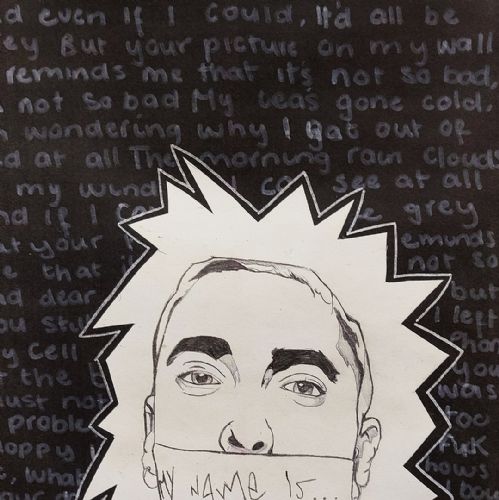 d even if I could, It'd all be
ey But your picture on my wall
reminds me that it's not so bad,
not so bad My tea's gone cold,
wondering why I got out of
d at all The morning rain Cloud
my wind see at all
nd if I co grey
at your eminds
e that i not so
d dear but
ou st I left
y Cell
t the b
ust not was
proble too
loppy fuk
, what hows
MY NAME IS...